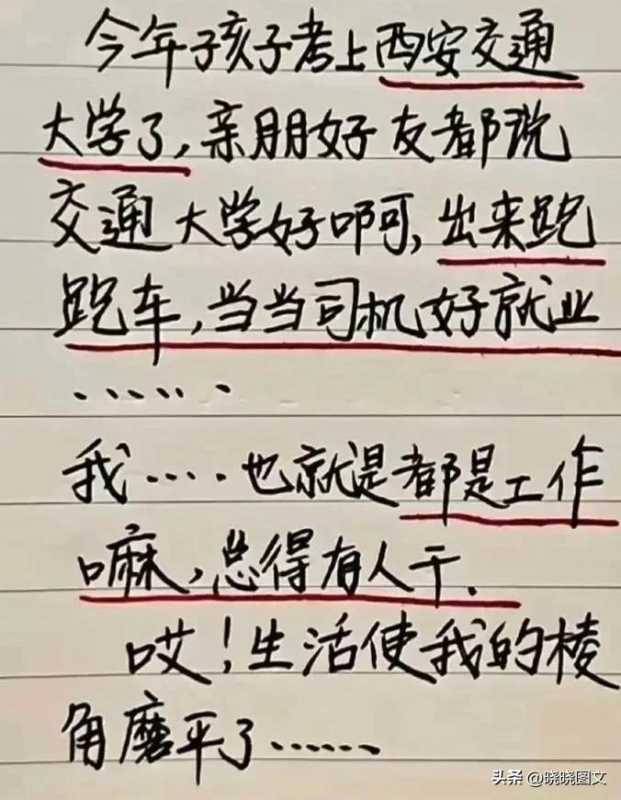 今年孩子考上西安交通
大学了,亲朋好友都说
交通大学好啊,出来跑
跑车,当当司机好就业
......
我....也就是都是工作
嘛,总得有人干.
哎!生活使我的棱
角磨平了......
头条 @晓晓图文